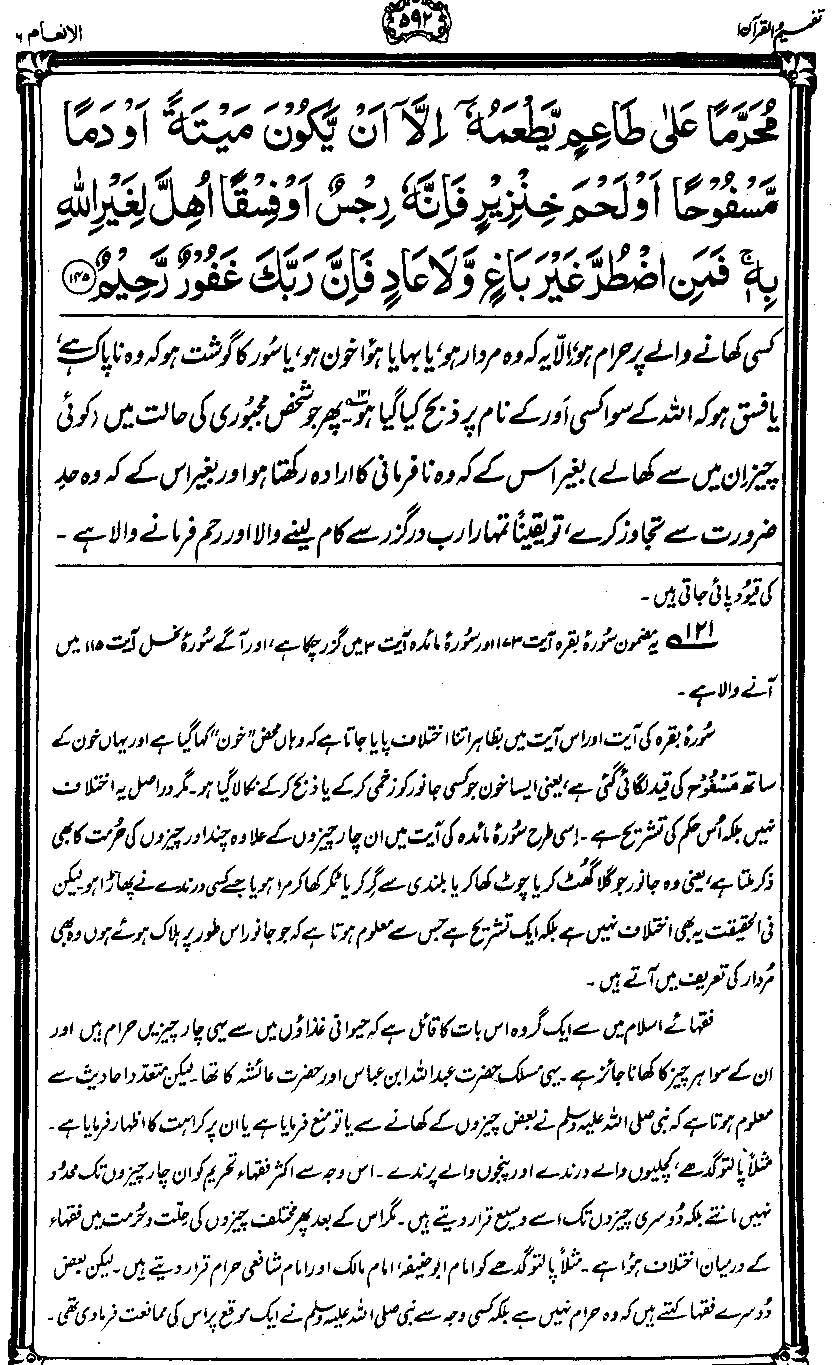 تفہیم القرآن ۱
۵۹۲
الانعام ۶
مُحَرَّمًا عَلٰى طَاعِمٍ يَّطْعَمُهٗۤ اِلَّاۤ اَنْ يَّكُوْنَ مَيْتَةً اَوْ دَمًا
مَّسْفُوْحًا اَوْ لَحْمَ خِنْزِيْرٍ فَاِنَّهٗ رِجْسٌ اَوْ فِسْقًا اُهِلَّ لِغَيْرِ اللّٰهِ
بِهٖۚ فَمَنِ اضْطُرَّ غَيْرَ بَاغٍ وَّلَا عَادٍ فَاِنَّ رَبَّكَ غَفُوْرٌ رَّحِيْمٌ ۱۴۵
کسی کھانے والے پر حرام ہو، اِلّا یہ کہ وہ مردار ہو، یا بہایا ہوُا خون ہو، یا سور کا گوشت ہو کہ وہ ناپاک ہے،
یا فسق ہو کہ اللہ کے سوا کسی اَور کے نام پر ذبح کیا گیا ہو۱۲۱۔ پھر جو شخص مجبوری کی حالت میں (کوئی
چیز ان میں سے کھا لے) بغیر اس کے کہ وہ نافرمانی کا ارادہ رکھتا ہو اور بغیر اس کے کہ وہ حدِ
ضرورت سے تجاوز کرے، تو یقیناً تمہارا رب درگزر سے کام لینے والا اور رحم فرمانے والا ہے۔
کی قیُود پائی جاتی ہیں۔
۱۲۱ یہ مضمون سُورۂ بقرہ آیت ۱۷۳ اور سُورۂ مائدہ آیت ۳ میں گزر چکا ہے، اور آگے سُورۂ نحل آیت ۱۱۵ میں
آنے والا ہے۔
سُورۂ بقرہ کی آیت اور اس آیت میں بظاہر اتنا اختلاف پایا جاتا ہے کہ وہاں محض "خون" کہا گیا ہے اور یہاں خون کے
ساتھ مَسْفُوْح کی قید لگائی گئی ہے، یعنی ایسا خون جو کسی جانور کو زخمی کر کے یا ذبح کر کے نکالا گیا ہو۔ مگر دراصل یہ اختلاف
نہیں بلکہ اُس حکم کی تشریح ہے۔ اِسی طرح سُورۂ مائدہ کی آیت میں ان چار چیزوں کے علاوہ چند اور چیزوں کی حُرمت کا بھی
ذکر ملتا ہے، یعنی وہ جانور جو گلا گھُٹ کر یا چوٹ کھا کر یا بلندی سے گِر کر یا ٹکر کھا کر مرا ہو یا جسے کسی درندے نے پھاڑا ہو۔ لیکن
فی الحقیقت یہ بھی اختلاف نہیں ہے بلکہ ایک تشریح ہے جس سے معلوم ہوتا ہے کہ جو جانور اس طور پر ہلاک ہوئے ہوں وہ بھی
مُردار کی تعریف میں آتے ہیں۔
فقہائے اسلام میں سے ایک گروہ اس بات کا قائل ہے کہ حیوانی غذاؤں میں سے یہی چار چیزیں حرام ہیں اور
ان کے سوا ہر چیز کا کھانا جائز ہے۔ یہی مسلک حضرت عبداللہ ابن عباس اور حضرت عائشہ کا تھا۔ لیکن متعدد احادیث سے
معلوم ہوتا ہے کہ نبی صلی اللہ علیہ وسلم نے بعض چیزوں کے کھانے سے یا تو منع فرمایا ہے یا ان پر کراہت کا اظہار فرمایا ہے۔
مثلاً پالتو گدھے، کچلیوں والے درندے اور پنجوں والے پرندے۔ اس وجہ سے اکثر فقہاء تحریم کو ان چار چیزوں تک محدُود
نہیں مانتے بلکہ دُوسری چیزوں تک اسے وسیع قرار دیتے ہیں۔ مگر اس کے بعد پھر مختلف چیزوں کی حِلّت و حُرمت میں فقہاء
کے درمیان اختلاف ہوُا ہے۔ مثلاً پالتو گدھے کو امام ابوحنیفہ، امام مالک اور امام شافعی حرام قرار دیتے ہیں۔ لیکن بعض
دُوسرے فقہا کہتے ہیں کہ وہ حرام نہیں ہے بلکہ کسی وجہ سے نبی صلی اللہ علیہ وسلم نے ایک موقع پر اس کی ممانعت فرما دی تھی۔